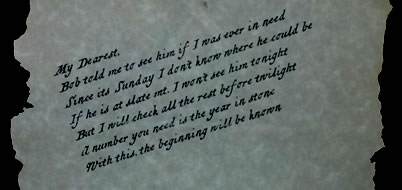 My Dearest,
Bob told me to see him if I was ever in need
Since its Sunday I don't know where he could be
If he is at slate mt. I won't see him tonight
But I will check all the rest before twilight
A number you need is the year in stone
With this, the beginning will be known